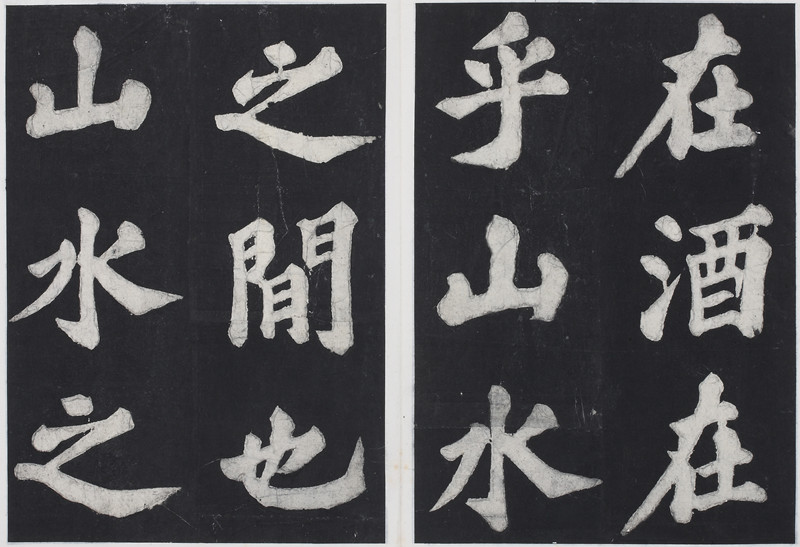 在酒在
乎山水
之間也
山水之